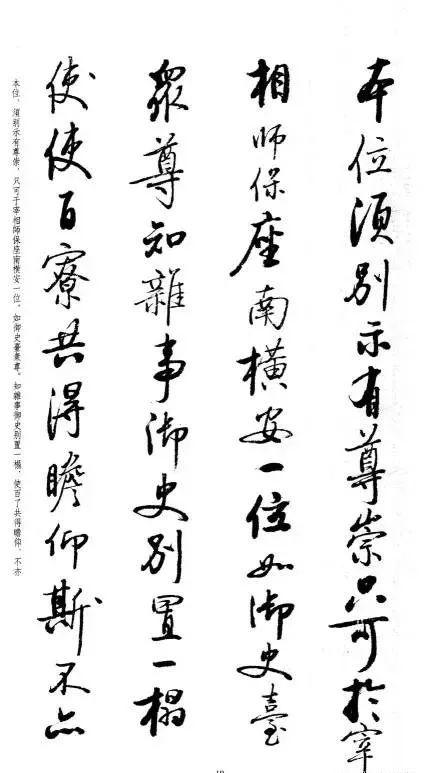 本位須別示有尊崇只可於宰
相師保座南橫安一位如御史臺
眾尊知雜事御史別置一榻
使使百寮共得瞻仰斯不亦
本位，須别示有尊崇，只可于宰相師保座南横安一位，如御史臺衆尊，知雜事御史别置一榻，使百寮共得瞻仰，不亦